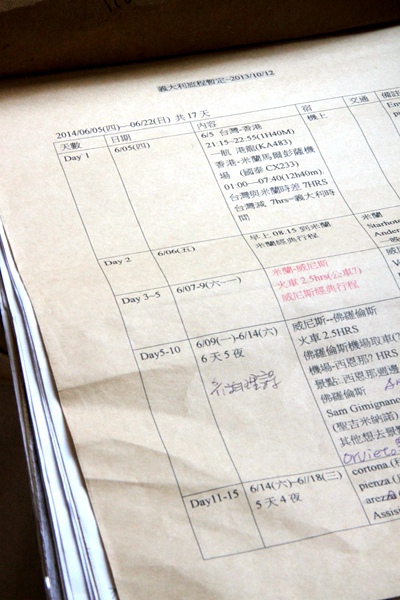 義大利旅程暫定~2013/10/12
2014/06/05(四)—06/22(日) 共 17 天
天數 日期 內容 宿 交通 備註
Day 1 6/05(四) 6/5 台灣-香港 機上
21:15~22:55(1H40M)
港龍(KA483)
香港-米蘭馬爾彭薩機
場 (國泰 CX233)
01:00—07:40(12h40m)
台灣與米蘭時差 7HRS
台灣減 7hrs=義大利時
間
Day 2 6/06(五) 早上 08:15 到米蘭 米蘭
米蘭經典行程
Day 3~5 6/07~9(六~一) 米蘭-威尼斯
火車 2.5hrs(公車?)
威尼斯經典行程
Day5-10 6/09(一)~6/14(六) 威尼斯--佛羅倫斯
6 天 5 夜 火車 2.5HRS
佛羅倫斯機場取車(?
機場-西恩那? HRS
景點:西恩那週邊
佛羅倫斯
Sam Gimignano
(聖吉米納諾)
其他想去景
Orvieto
Day11-15 6/14(六)~6/18(三) cortona
5 天 4 夜 pienza
arezzo
Assisi